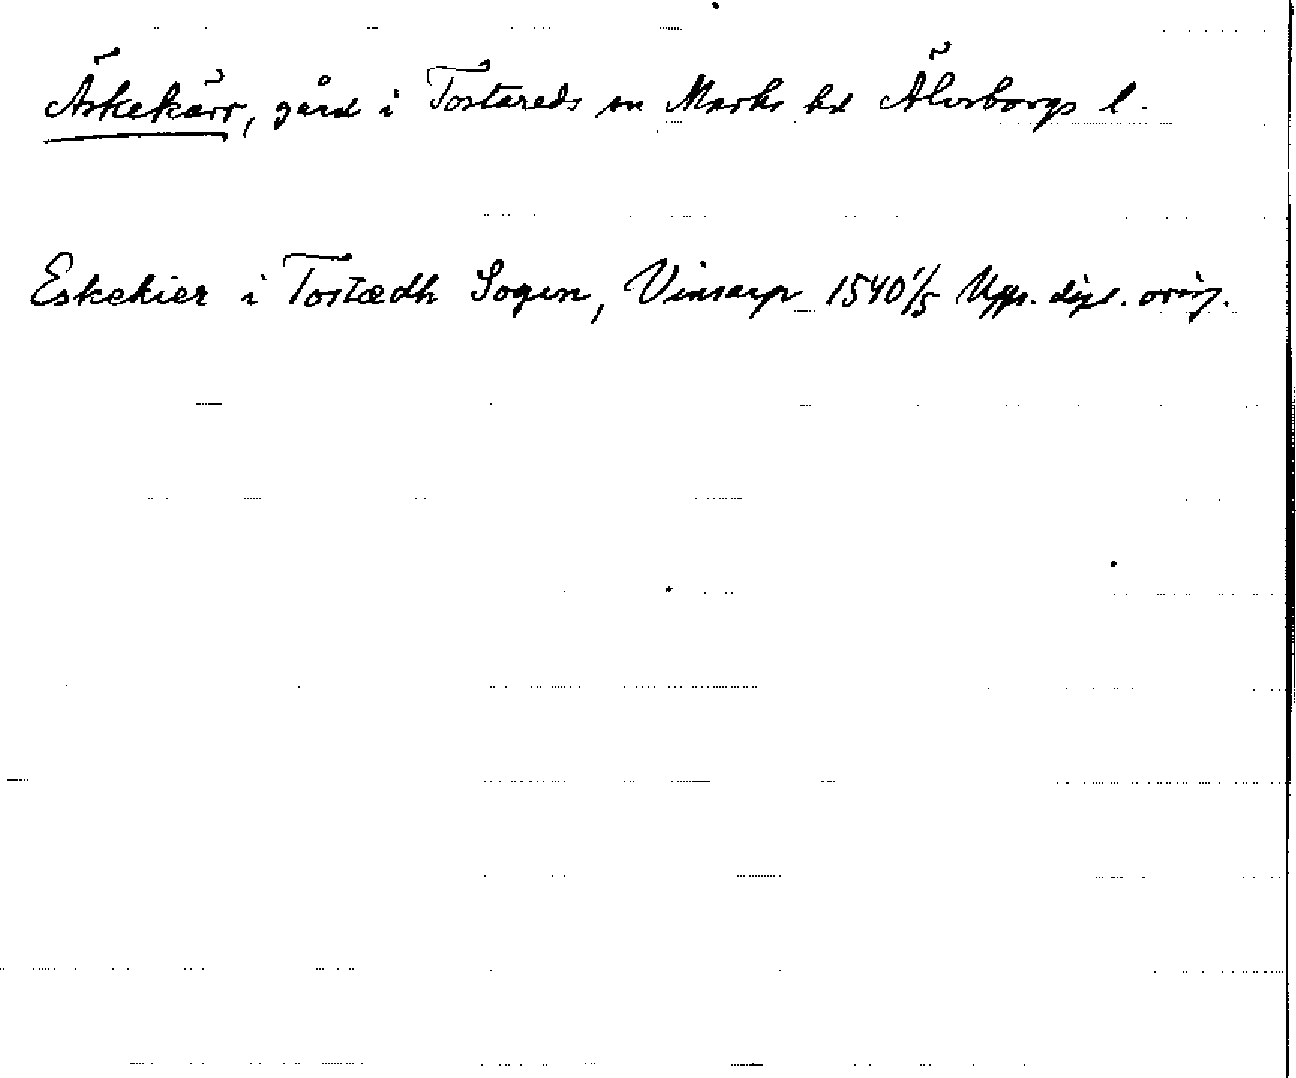 Äskekärr, gård i Tostareds sn Marks hd Älvsborgs l.
Eskekier i Tostædh Sogen, Vinsarp 1540 1/5 Upps. dipl. orig.